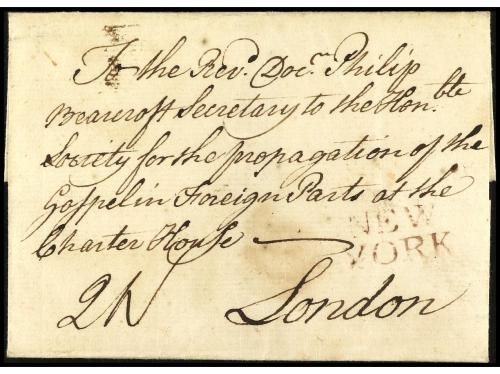 To the Revd. Docr. Philip
Bearcroft Secretary to the Honble
Society for the propagation of the
Gospel in Foreign Parts at the
Charter House
NEW
YORK
2N London